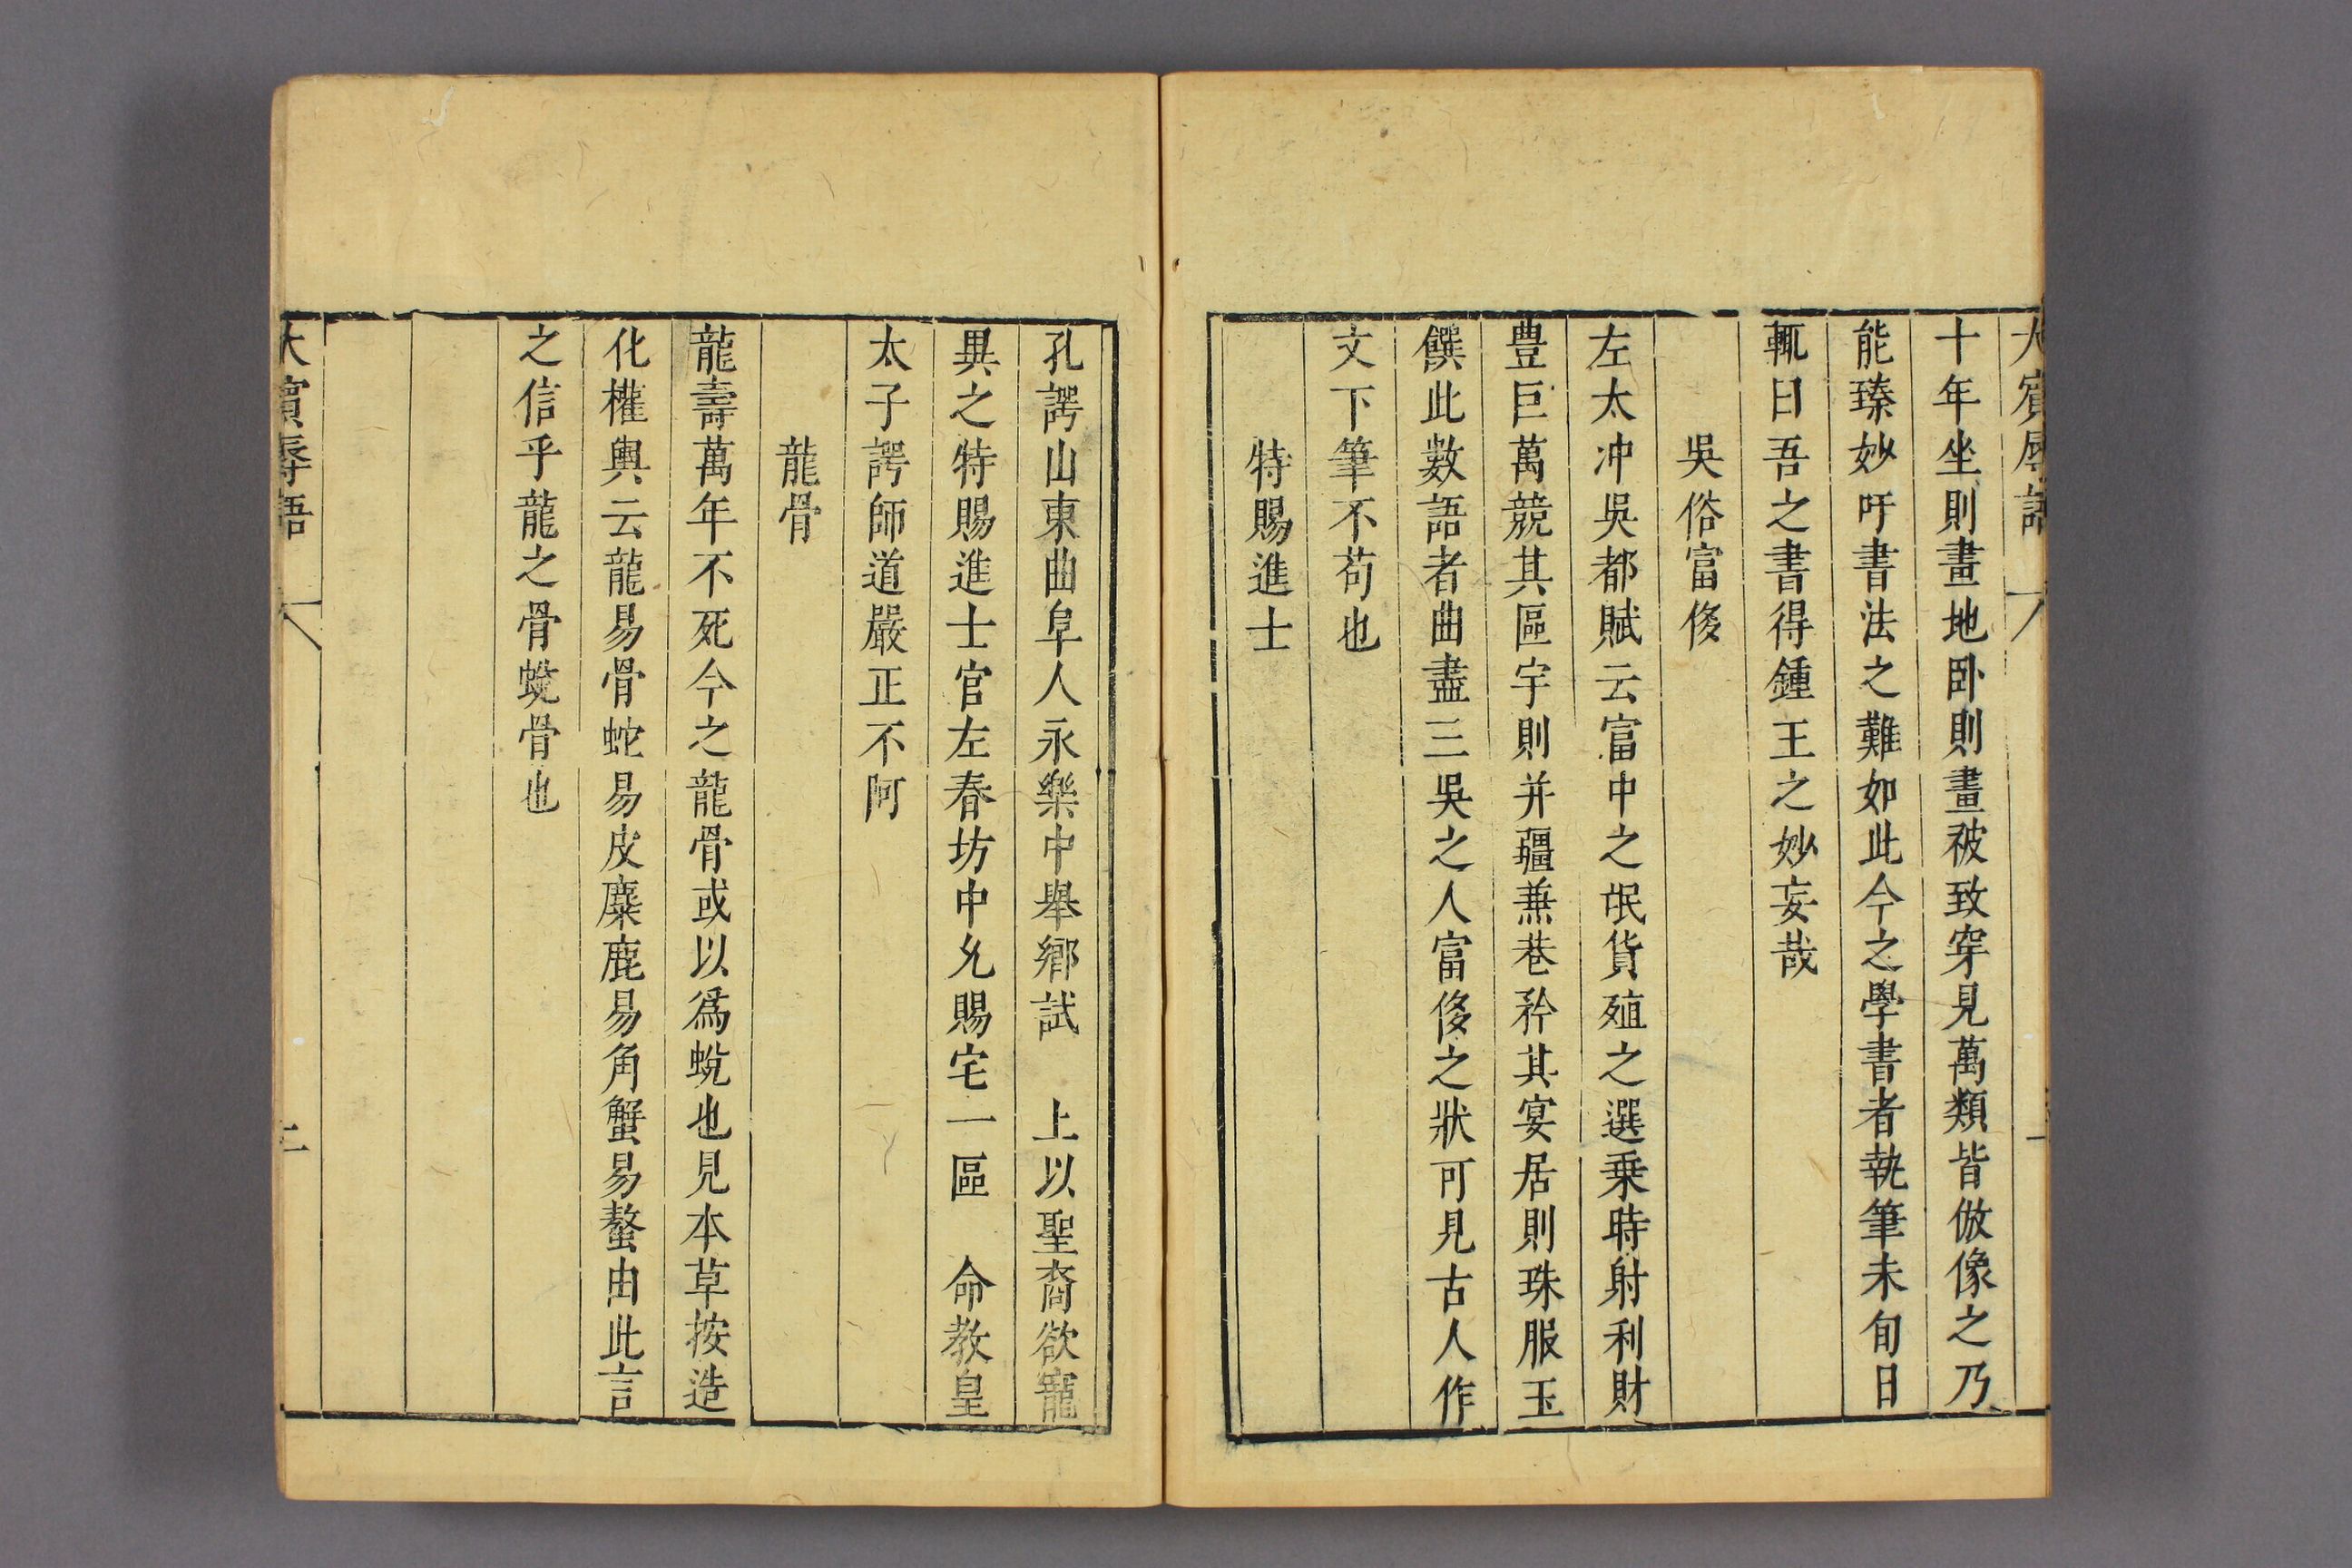 十年坐則畫地卧則畫被致穿見萬類皆倣像之乃
能臻妙吁書法之難如此今之學書者執筆未旬日
輒曰吾之書得鍾王之妙妄哉
吳俗富侈
左太冲吳都賦云富中之氓貨殖之選乗時射利財
豊巨萬競其區宇則并疆兼巷矜其宴居則珠服玉
饌此數語者曲盡三吳之人富侈之狀可見古人作
文下筆不苟也
特賜進士
孔諤山東曲阜人永樂中舉鄉試　上以聖裔欲寵
異之特賜進士官左春坊中允賜宅一區　命教皇
太子諤師道嚴正不阿
龍骨
龍壽萬年不死今之龍骨或以爲蛻也見本草按造
化權輿云龍易骨蛇易皮麋鹿易角蟹易螯由此言
之信乎龍之骨蛻骨也
大賓辱語